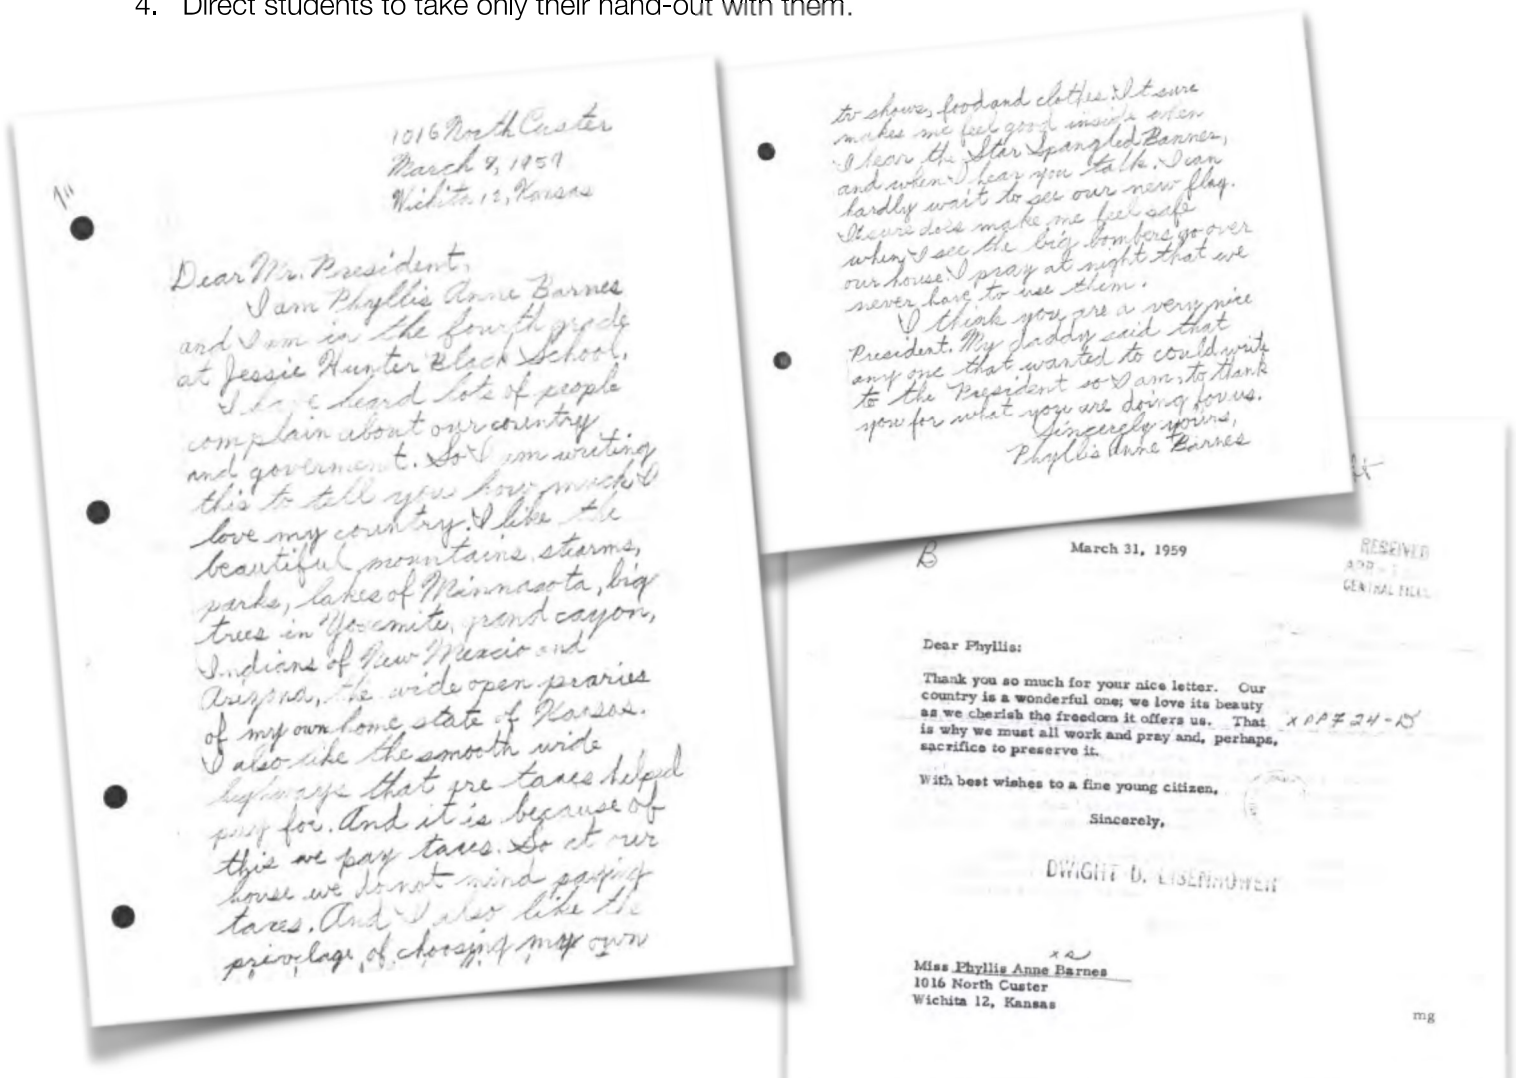 4. Direct students to take only their hand-out with them.
1016 North Custer
March 9, 1959
Wichita 12, Kansas
Dear Mr. President,
I am Phyllis Anne Barnes
and I am in the fourth grade
at Jessie Hunter Black School.
I have heard lots of people
complain about our country
and goverment. So I am writing
this to tell you how much I
love my country. I like the
beautiful mountains, stearms,
parks, lakes of Minnasota, big
trees in Yosemite, grand cayon,
Indians of New Mexcio and
Arizona, the wide open praries
of my own home state of Kansas.
I also like the smooth wide
highways that are taxes helped
pay for. And it is because of
this we pay taxes. So at our
house we do not mind paying
taxes. And I also like the
privelage of choosing my own
tv shows, food and clothes. It sure
makes me feel good inside when
I hear the Star Spangled Banner,
and when I hear you talk. I can
hardly wait to see our new flag.
It sure does make me feel safe
when I see the big bombers go over
our house. I pray at night that we
never have to use them.
I think you are a very nice
President. My daddy said that
any one that wanted to could write
to the President so I am, to thank
you for what you are doing for us.
Sincerely yours,
Phyllis Anne Barnes
B
March 31, 1959
RECEIVED
APR - 1
CENTRAL FILES
Dear Phyllis:
Thank you so much for your nice letter. Our
country is a wonderful one; we love its beauty
as we cherish the freedom it offers us. That
is why we must all work and pray and, perhaps,
sacrifice to preserve it.
With best wishes to a fine young citizen,
Sincerely,
DWIGHT D. EISENHOWER
Miss Phyllis Anne Barnes
1016 North Custer
Wichita 12, Kansas
mg